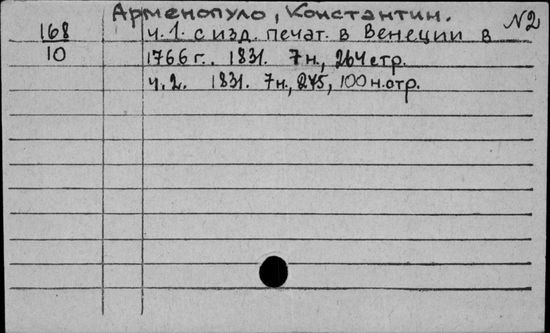 Арменопуло, Константин. №2
168 ч.1. с изд. печат. в Венеции в
10 1766 г. 1831. 7н., 264 стр.
ч.2. 1831. 7н., 275, 100 н.отр.